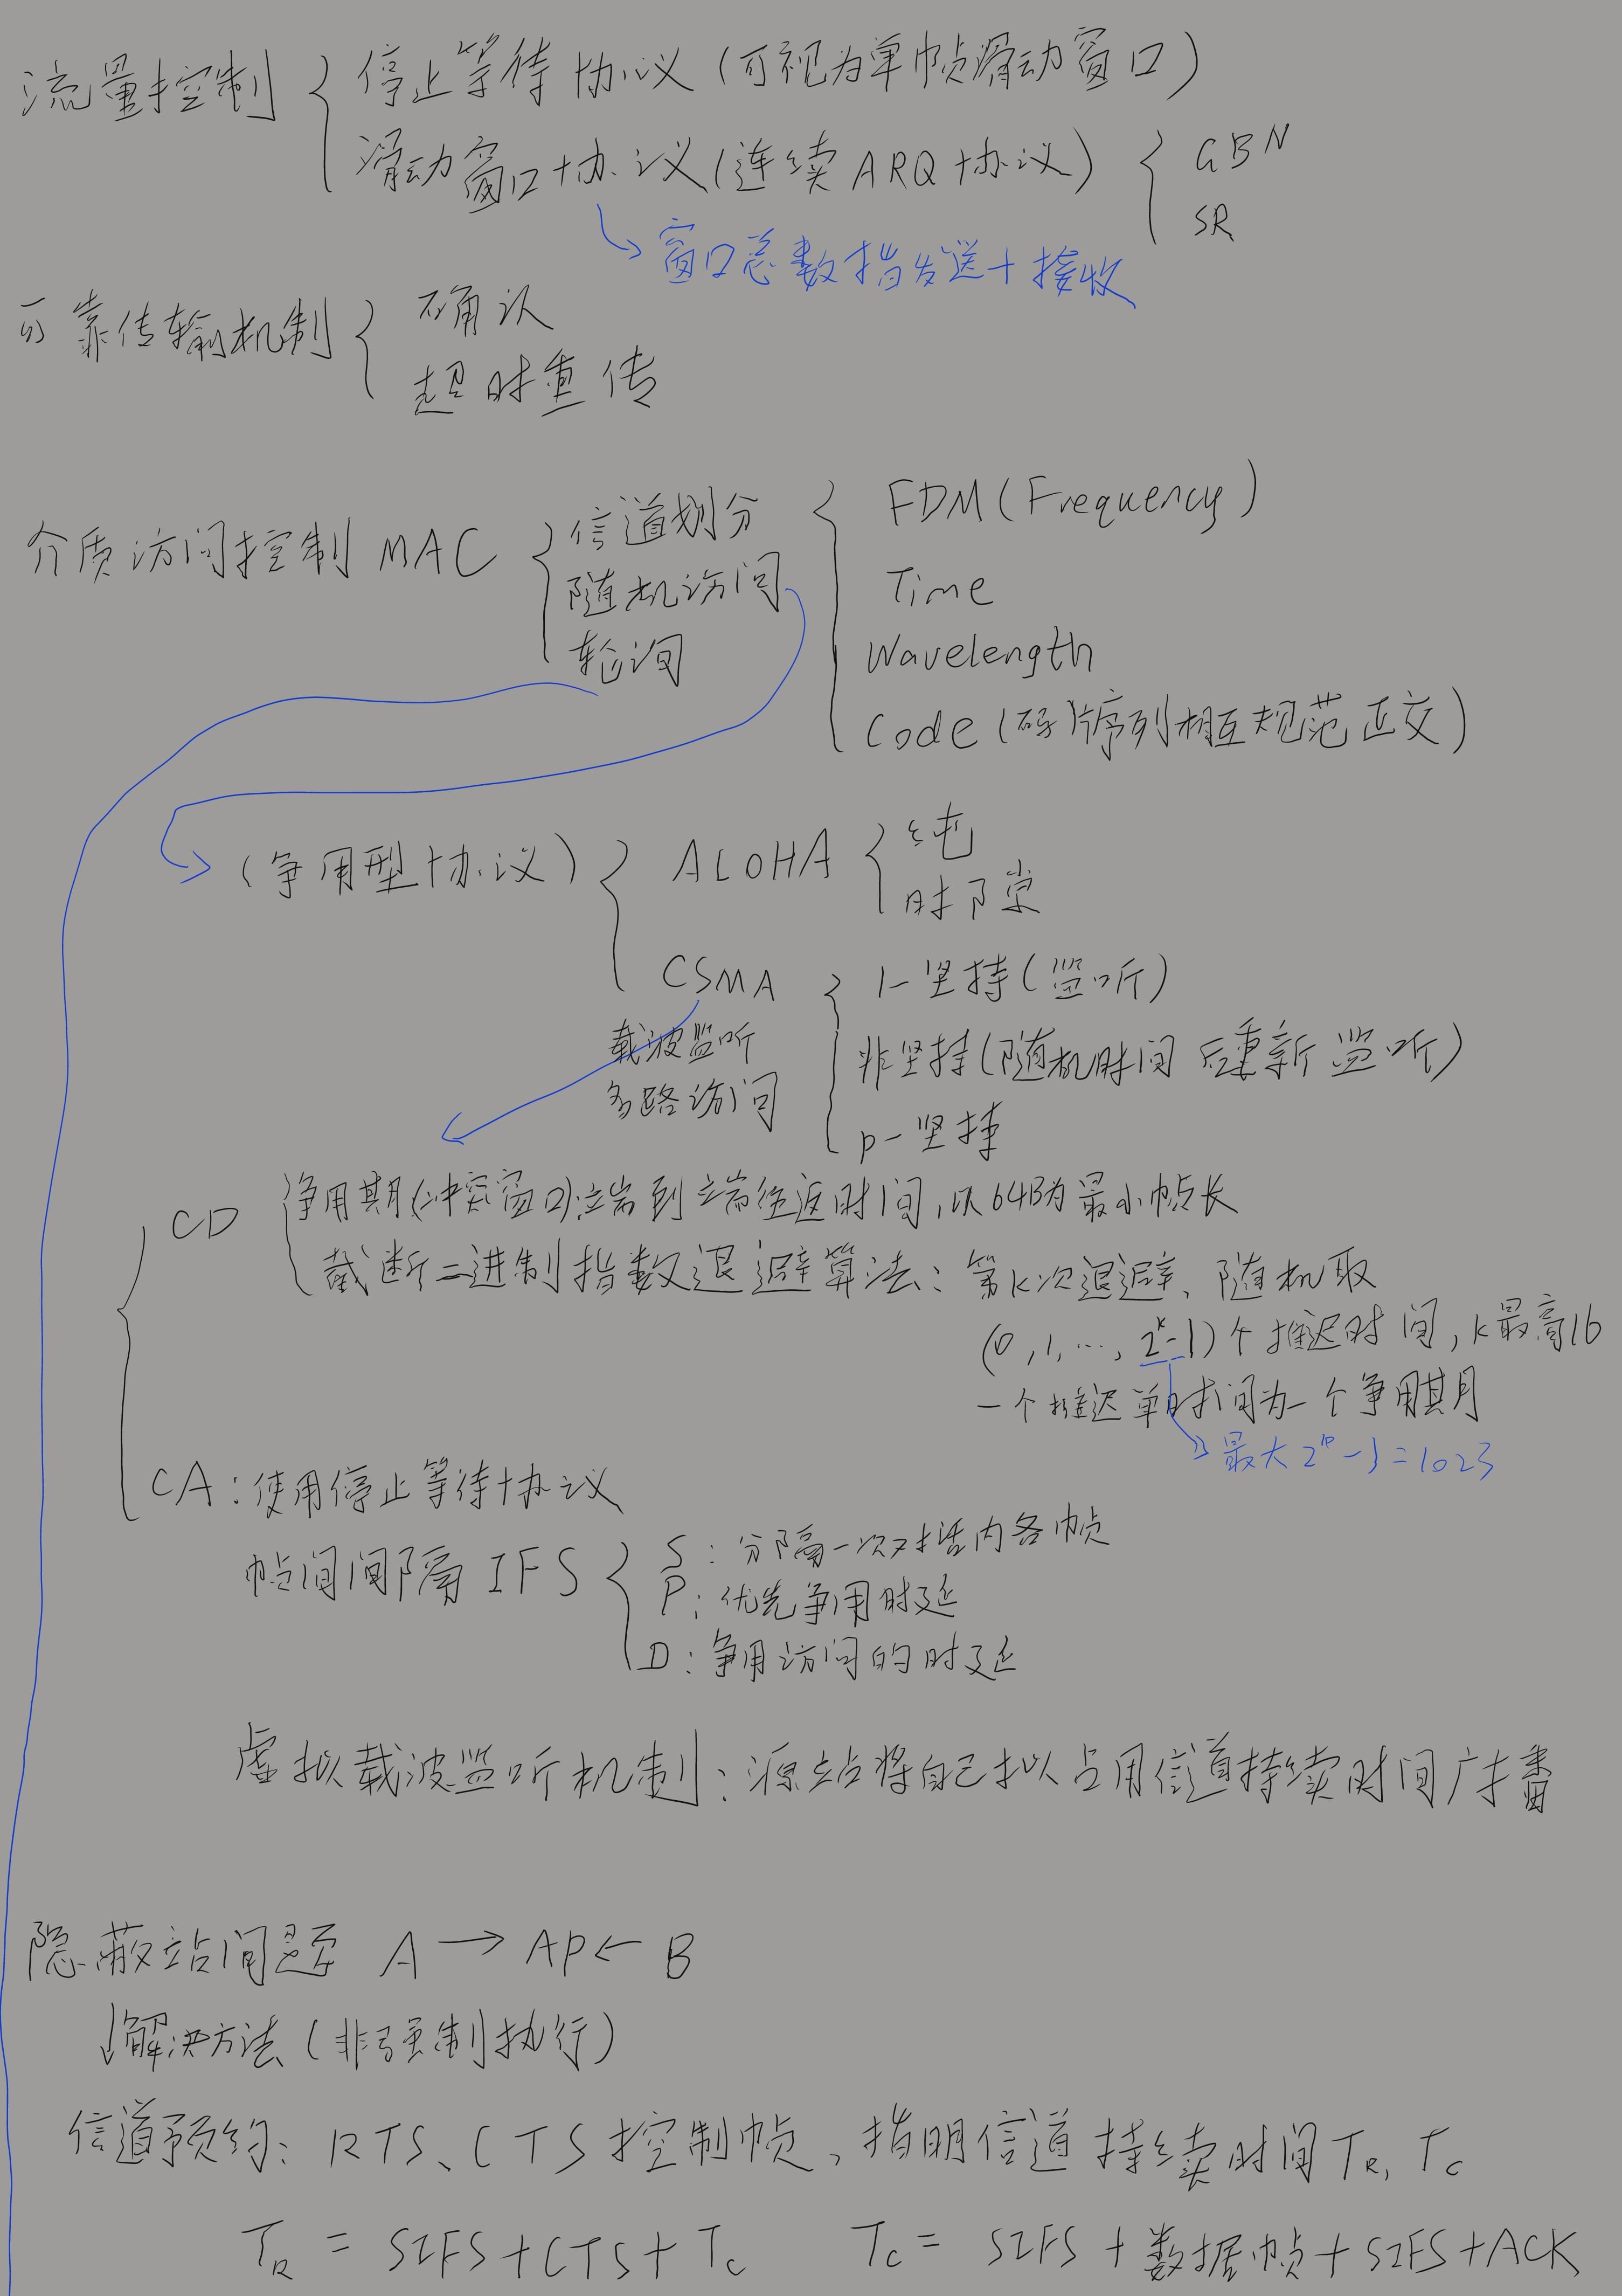 流量控制
停止等待协议(可视为单帧滑动窗口)
滑动窗口协议(连续ARQ协议)
GBN
SR
窗口总数指发送+接收
可靠传输机制
确认
超时重传
介质访问控制 MAC
信道划分
随机访问
轮询
FDM(Frequency)
Time
Wavelength
Code(码片序列相互规范正交)
(争用型协议)
ALOHA
纯
时隙
CSMA
载波监听
多路访问
1-坚持(监听)
非坚持(随机时间后重新监听)
p-坚持
CD
争用期(冲突窗口):端到端往返时间,以64B为最小帧长
截断二进制指数退避算法:第k次退避、随机取
(0,1,…,2^k-1)个推迟时间,k最高16
一个推迟单时间为一个争用期
最大2^10-1=1023
CA:使用停止等待协议
帧间间隔 IFS
S:分隔一次对话内各帧
P:优先争用时延
D:争用访问的时延
虚拟载波监听机制:源站将自己拟占用信道持续时间广播
隐蔽站问题 A → AP ← B
↓解决方法(非强制执行)
信道预约:RTS、CTS控制帧,指明信道持续时间T_R, T_C
T_R = SIFS+CTS+T_C T_C = SIFS+数据帧+SIFS+ACK